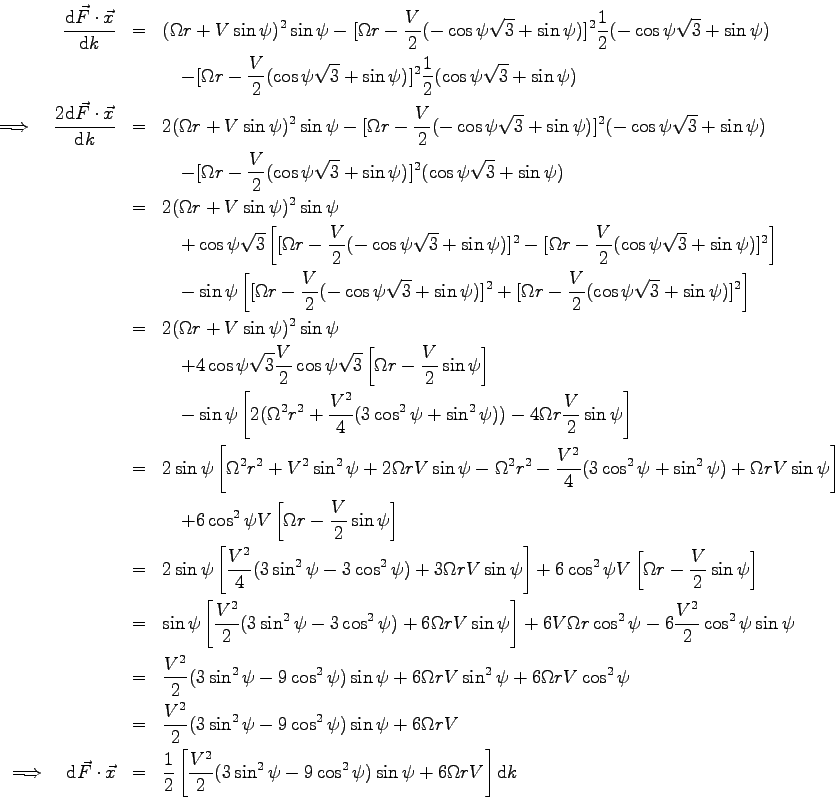 $\frac{\mathrm{d}\vec{F}\cdot\vec{x}}{\mathrm{d}k} = (\Omega r + V\sin\psi)^2\sin\psi - [\Omega r - \frac{V}{2}(-\cos\psi\sqrt{3} + \sin\psi)]^2\frac{1}{2}(-\cos\psi\sqrt{3} + \sin\psi)$
$-[\Omega r - \frac{V}{2}(\cos\psi\sqrt{3} + \sin\psi)]^2\frac{1}{2}(\cos\psi\sqrt{3} + \sin\psi)$
$\Longrightarrow \frac{2\mathrm{d}\vec{F}\cdot\vec{x}}{\mathrm{d}k} = 2(\Omega r + V\sin\psi)^2\sin\psi - [\Omega r - \frac{V}{2}(-\cos\psi\sqrt{3} + \sin\psi)]^2(-\cos\psi\sqrt{3} + \sin\psi)$
$-[\Omega r - \frac{V}{2}(\cos\psi\sqrt{3} + \sin\psi)]^2(\cos\psi\sqrt{3} + \sin\psi)$
$= 2(\Omega r + V\sin\psi)^2\sin\psi$
$+\cos\psi\sqrt{3}\left[[\Omega r - \frac{V}{2}(-\cos\psi\sqrt{3} + \sin\psi)]^2 - [\Omega r - \frac{V}{2}(\cos\psi\sqrt{3} + \sin\psi)]^2\right]$
$-\sin\psi\left[[\Omega r - \frac{V}{2}(-\cos\psi\sqrt{3} + \sin\psi)]^2 + [\Omega r - \frac{V}{2}(\cos\psi\sqrt{3} + \sin\psi)]^2\right]$
$= 2(\Omega r + V\sin\psi)^2\sin\psi$
$+4\cos\psi\sqrt{3}\frac{V}{2}\cos\psi\sqrt{3}\left[\Omega r - \frac{V}{2}\sin\psi\right]$
$-\sin\psi\left[2(\Omega^2r^2 + \frac{V^2}{4}(3\cos^2\psi + \sin^2\psi)) - 4\Omega r\frac{V}{2}\sin\psi\right]$
$= 2\sin\psi\left[\Omega^2r^2 + V^2\sin^2\psi + 2\Omega rV\sin\psi - \Omega^2r^2 - \frac{V^2}{4}(3\cos^2\psi + \sin^2\psi) + \Omega rV\sin\psi\right]$
$+6\cos^2\psi V\left[\Omega r - \frac{V}{2}\sin\psi\right]$
$= 2\sin\psi\left[\frac{V^2}{4}(3\sin^2\psi - 3\cos^2\psi) + 3\Omega rV\sin\psi\right] + 6\cos^2\psi V\left[\Omega r - \frac{V}{2}\sin\psi\right]$
$= \sin\psi\left[\frac{V^2}{2}(3\sin^2\psi - 3\cos^2\psi) + 6\Omega rV\sin\psi\right] + 6V\Omega r\cos^2\psi - 6\frac{V^2}{2}\cos^2\psi\sin\psi$
$= \frac{V^2}{2}(3\sin^2\psi - 9\cos^2\psi)\sin\psi + 6\Omega rV\sin^2\psi + 6\Omega rV\cos^2\psi$
$= \frac{V^2}{2}(3\sin^2\psi - 9\cos^2\psi)\sin\psi + 6\Omega rV$
$\Longrightarrow \mathrm{d}\vec{F}\cdot\vec{x} = \frac{1}{2}\left[\frac{V^2}{2}(3\sin^2\psi - 9\cos^2\psi)\sin\psi + 6\Omega rV\right]\mathrm{d}k$